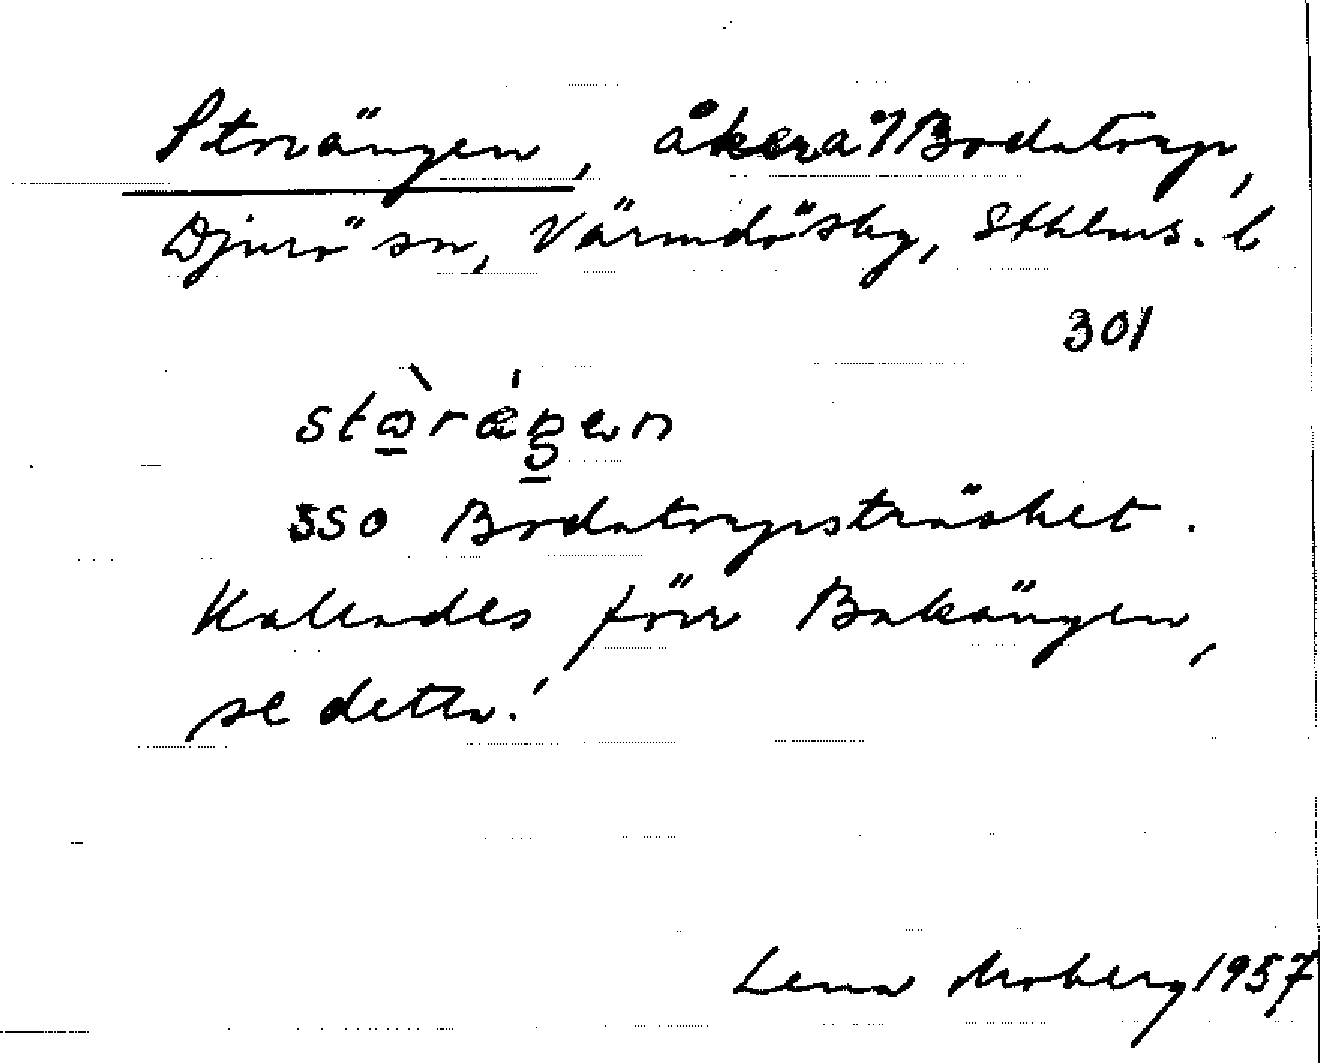 Storängen, åker å Bodatorp,
Djurö sn, Värmdö skg, Sthlms. l
301
stòrǽŋen
SSO Bodatorpsträsket.
Kallades förr Bakängen,
se detta!
Lena Moberg 1957